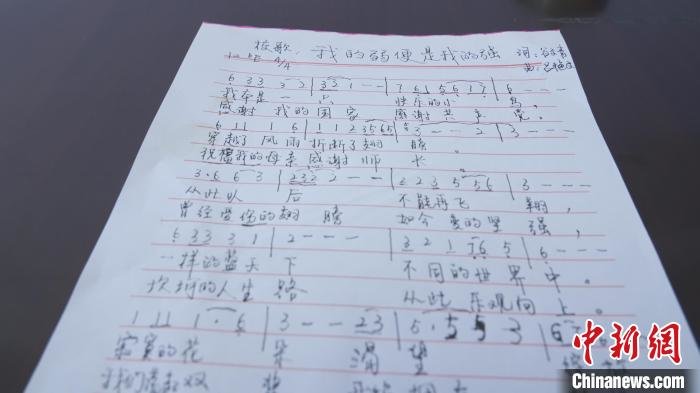 校歌：我的弱便是我的强 词：
1=bE 4/4 曲：
6 3 3 3 2 | 3 2 1 - - | 7 6 1 5 6 1 7 | 6 - - -
我本是一只 快乐的小 鸟，
感谢 我的国家 感谢共产 党。
6 1 1 1 6 | 1 1 2 3 5 6 5 | 3 - - - 2 | 3 - - -
穿越了风雨折断了翅 膀。
祝福我的母亲感谢师 长
3 · 6 6 3 | 2 3 2 2 - - | 2 2 3 5 5 6 | 3 - - -
从此以 后 不能再飞 翔，
曾经受伤的翅 膀 如今变的坚 强，
6 3 3 3 1 | 2 - - - | 3 2 1 7 6 5 | 6 - - -
一样的蓝天 下 不同的世界 中。
坎坷的人生 路 从此乐观向 上。
1 1 1 1 · 6 | 3 - - 2 3 | 5 · 5 5 3 | 6
寂寞的花 朵 渴 望
我们
中新网
Chinanews.com